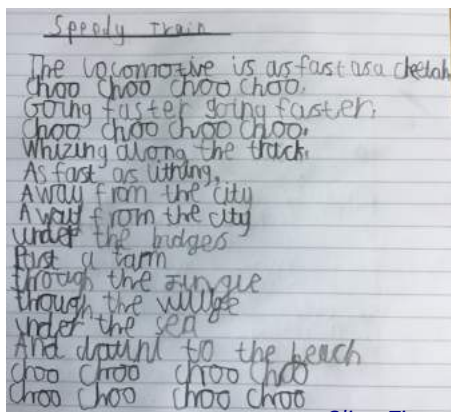 Speedy Train
The locomotive is as fast as a cheetah
choo choo choo choo.
Going faster going faster.
Choo choo choo choo.
Whizing along the track.
As fast as lithing.
Away from the city
Away from the city
under the bridges
Past a farm
through the jungle
though the village
under the sea
And to the beach
choo choo choo choo
choo choo choo choo